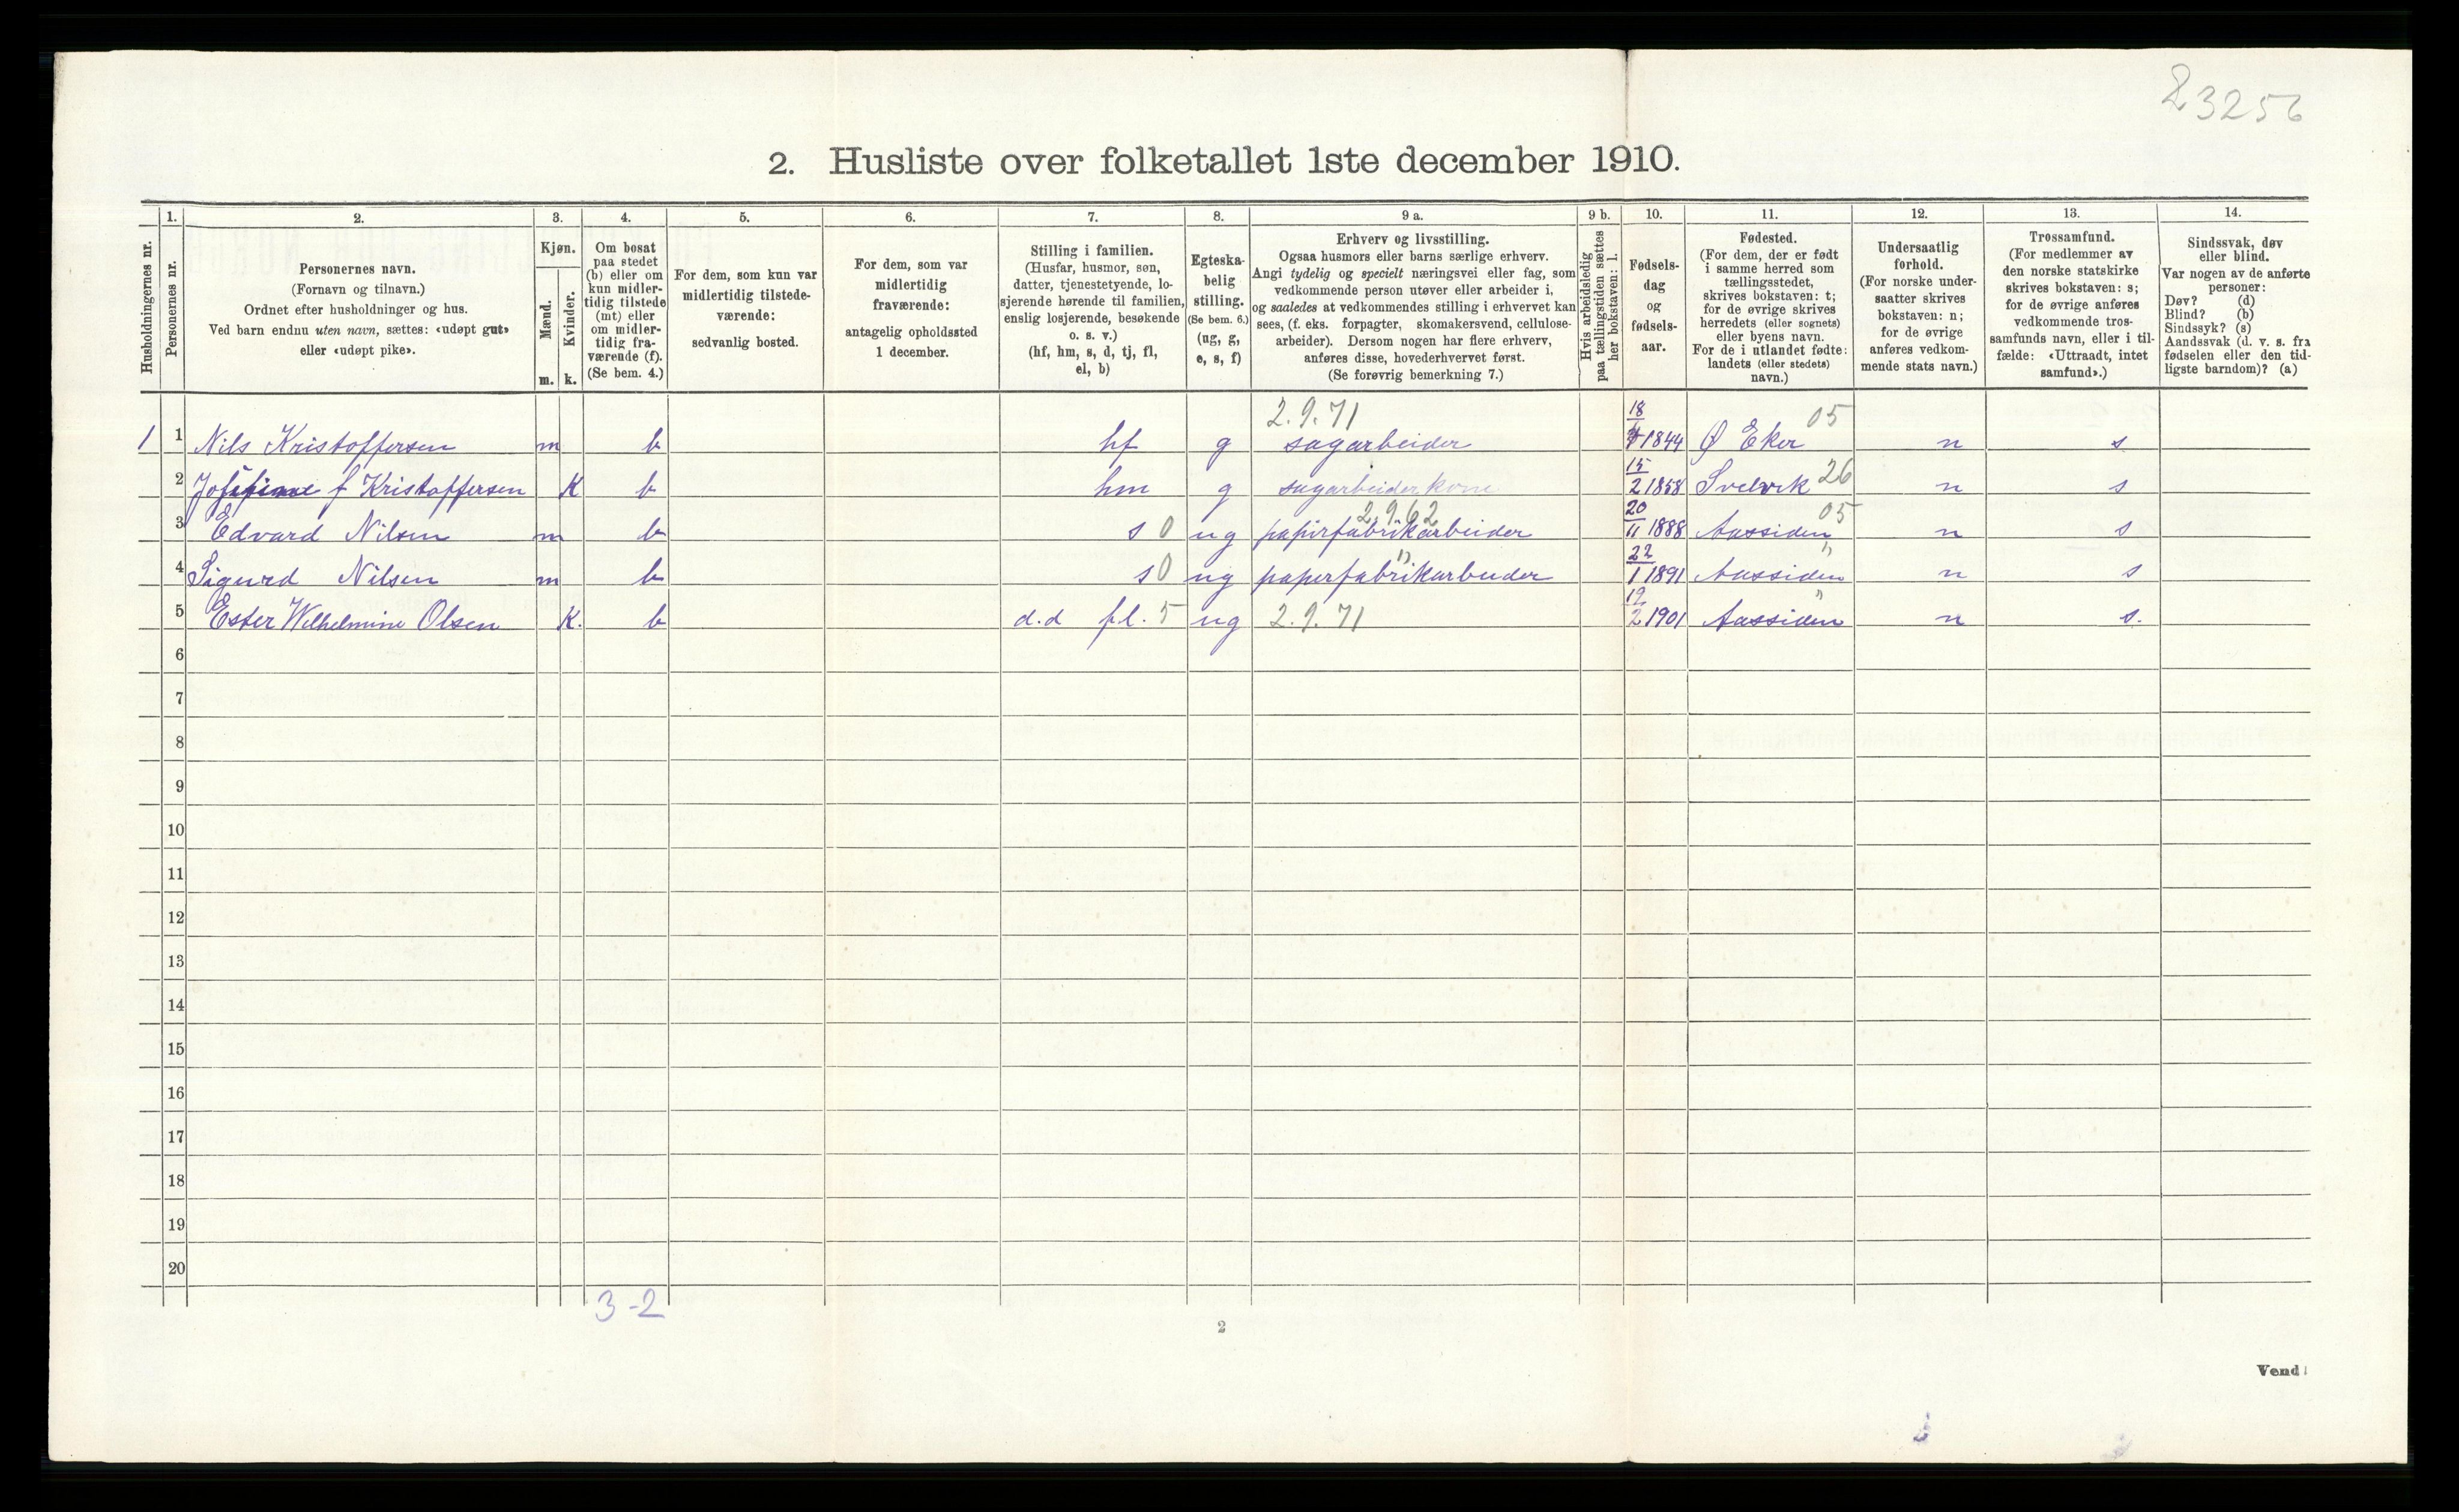 23256
2. Husliste over folketallet 1ste december 1910.
Husholdningernes nr.
1.
Personernes nr.
2.
Personernes navn.
(Fornavn og tilnavn.)
Ordnet efter husholdninger og hus.
Ved barn endnu uten navn, sættes: «udøpt gut»
eller «udøpt pike».
3.
Kjøn.
Mænd.
m.
Kvinder.
k.
4.
Om bosat
paa stedet
(b) eller om
kun midler-
tidig tilstede
(mt) eller
om midler-
tidig fra-
værende (f).
(Se bem. 4.)
5.
For dem, som kun var
midlertidig tilstede-
værende:
sedvanlig bosted.
6.
For dem, som var
midlertidig
fraværende:
antagelig opholdssted
1 december.
7.
Stilling i familien.
(Husfar, husmor, søn,
datter, tjenestetyende, lo-
sjerende hørende til familien,
enslig losjerende, besøkende
o. s. v.)
(hf, hm, s, d, tj, fl,
el, b)
8.
Egteska-
belig
stilling.
(Se bem. 6.)
(ug, g,
e, s, f)
9 a.
Erhverv og livsstilling.
Ogsaa husmors eller barns særlige erhverv.
Angi tydelig og specielt næringsvei eller fag, som
vedkommende person utøver eller arbeider i,
og saaledes at vedkommendes stilling i erhvervet kan
sees, (f. eks. forpagter, skomakersvend, cellulose-
arbeider). Dersom nogen har flere erhverv,
anføres disse, hovederhvervet først.
(Se forøvrig bemerkning 7.)
9 b.
Hvis arbeidsledig
paa tællingstiden sættes
her bokstaven: l.
10.
Fødsels-
dag
og
fødsels-
aar.
11.
Fødested.
(For dem, der er født
i samme herred som
tællingsstedet,
skrives bokstaven: t;
for de øvrige skrives
herredets (eller sognets)
eller byens navn.
For de i utlandet fødte:
landets (eller stedets)
navn.)
12.
Undersaatlig
forhold.
(For norske under-
saatter skrives
bokstaven: n;
for de øvrige
anføres vedkom-
mende stats navn.)
13.
Trossamfund.
(For medlemmer av
den norske statskirke
skrives bokstaven: s;
for de øvrige anføres
vedkommende tros-
samfunds navn, eller i til-
fælde: «Uttraadt, intet
samfund».)
14.
Sindssvak, døv
eller blind.
Var nogen av de anførte
personer:
Døv? (d)
Blind? (b)
Sindssyk? (s)
Aandssvak (d. v. s. fra
fødselen eller den tid-
ligste barndom)? (a)
2.9.71 18 05
1 1 Nils Kristoffersen m b hf g sagarbeider 1844 Ø Eker n s
15 26
2 Josefine f Kristoffersen K b hm g sagarbeiderkone 2 1858 Svelvik n s
2.9.62 20 05
3 Edvard Nilsen m b s 0 ug papirfabrikarbeider 11 1888 Aassiden n s
" 22 "
4 Sigurd Nilsen m b s 0 ug paperfabrikarbeider 1 1891 Aassiden n s
19 "
5 Ester Wilhelmine Olsen K. b d.d fl. 5 ug 2.9.71 2 1901 Aassiden n s.
6
7
8
9
10
11
12
13
14
15
16
17
18
19
20
3-2
2
Vend!